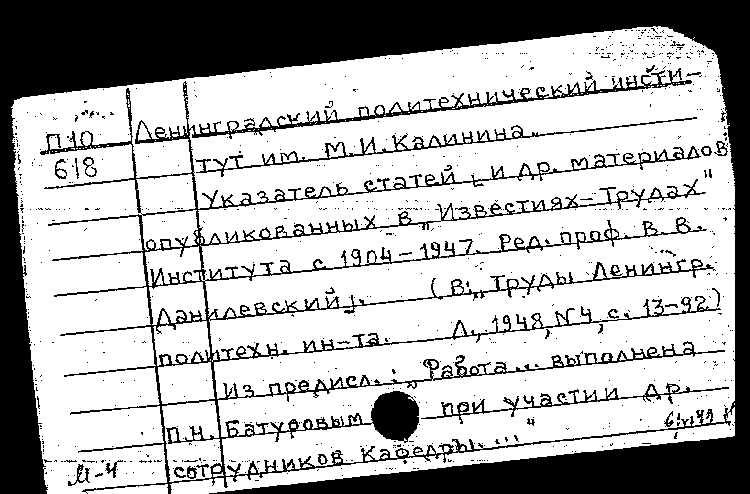 П10 Ленинградский политехнический инсти-
618 тут им. М.И.Калинина.
Указатель статей [и др. материалов
опубликованных в „Известиях-Трудах"
Института с 1904-1947. Ред. проф. В. В.
Данилевский]. (В: „Труды Ленингр.
политехн. ин-та. Л., 1948, N4, с. 13-92)
Из предисл.: „Работа... выполнена
П.Н. Батуровым при участии др.
сотрудников кафедры...."
М-4